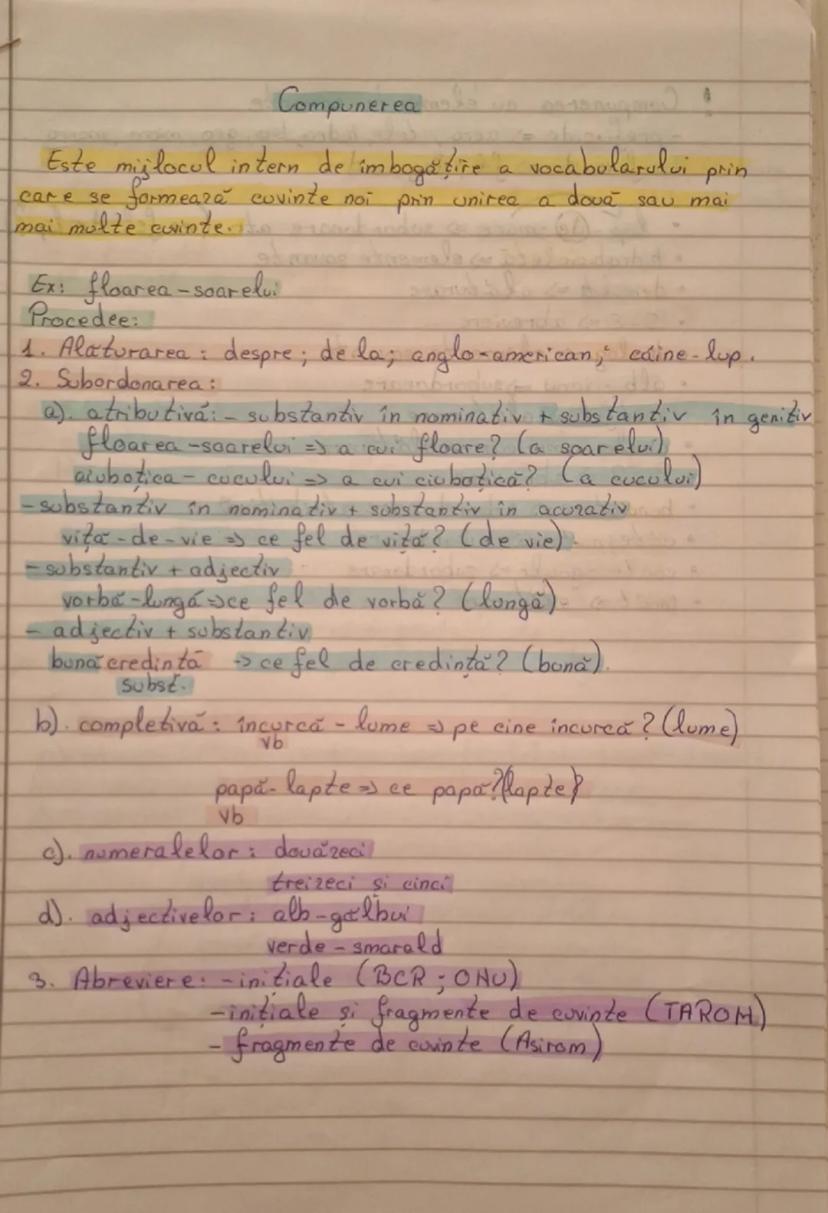 Compunerea
Este mijlocul intern de îmbogățire a vocabularului prin
care se formează cuvinte noi prin unirea a două sau mai
mai multe cuvinte.
Ex: floarea-soarelui
Procedee:
1. Alăturarea: despre; de la; anglo-american; câine-lup.
2. Subordonarea:
a). atributivă: - substantiv în nominativ + substantiv în genitiv
floarea-soarelui => a cui floare? (a soarelui)
ciubotica-cucului => a cui ciubotică? (a cucului)
-substantiv în nominativ + substantiv în acuzativ
viță-de-vie => ce fel de viță? (de vie).
-substantiv + adjectiv
vorbă-lungă => ce fel de vorbă? (lungă)
- adjectiv + substantiv
bunăcredință => ce fel de credință? (bună).
subst.
b). completivă: încurcă-lume => pe cine încurcă? (lume)
vb
papă-lapte => ce papă? (lapte)
vb
c). numeralelor: douăzeci
treizeci și cinci
d). adjectivelor: alb-gălbui
verde-smarald
3. Abreviere: -inițiale (BCR; ONU)
-inițiale și fragmente de cuvinte (TAROM)
- fragmente de cuvinte (Asirom)